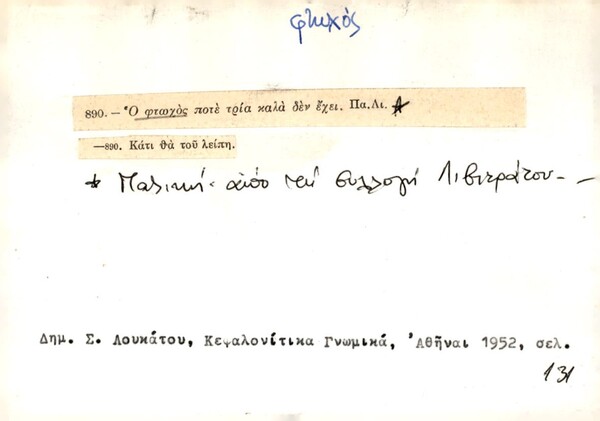 φτωχός
890. – Ὁ φτωχὸς ποτὲ τρία καλὰ δὲν ἔχει. Πα.Λι. *
—890. Κάτι θὰ τοῦ λείπη.
* Παλικὴ· ἀπὸ τὴ συλλογὴ Λιβιεράτου.–
Δημ. Σ. Λουκάτου, Κεφαλονίτικα Γνωμικά, Ἀθῆναι 1952, σελ.
131